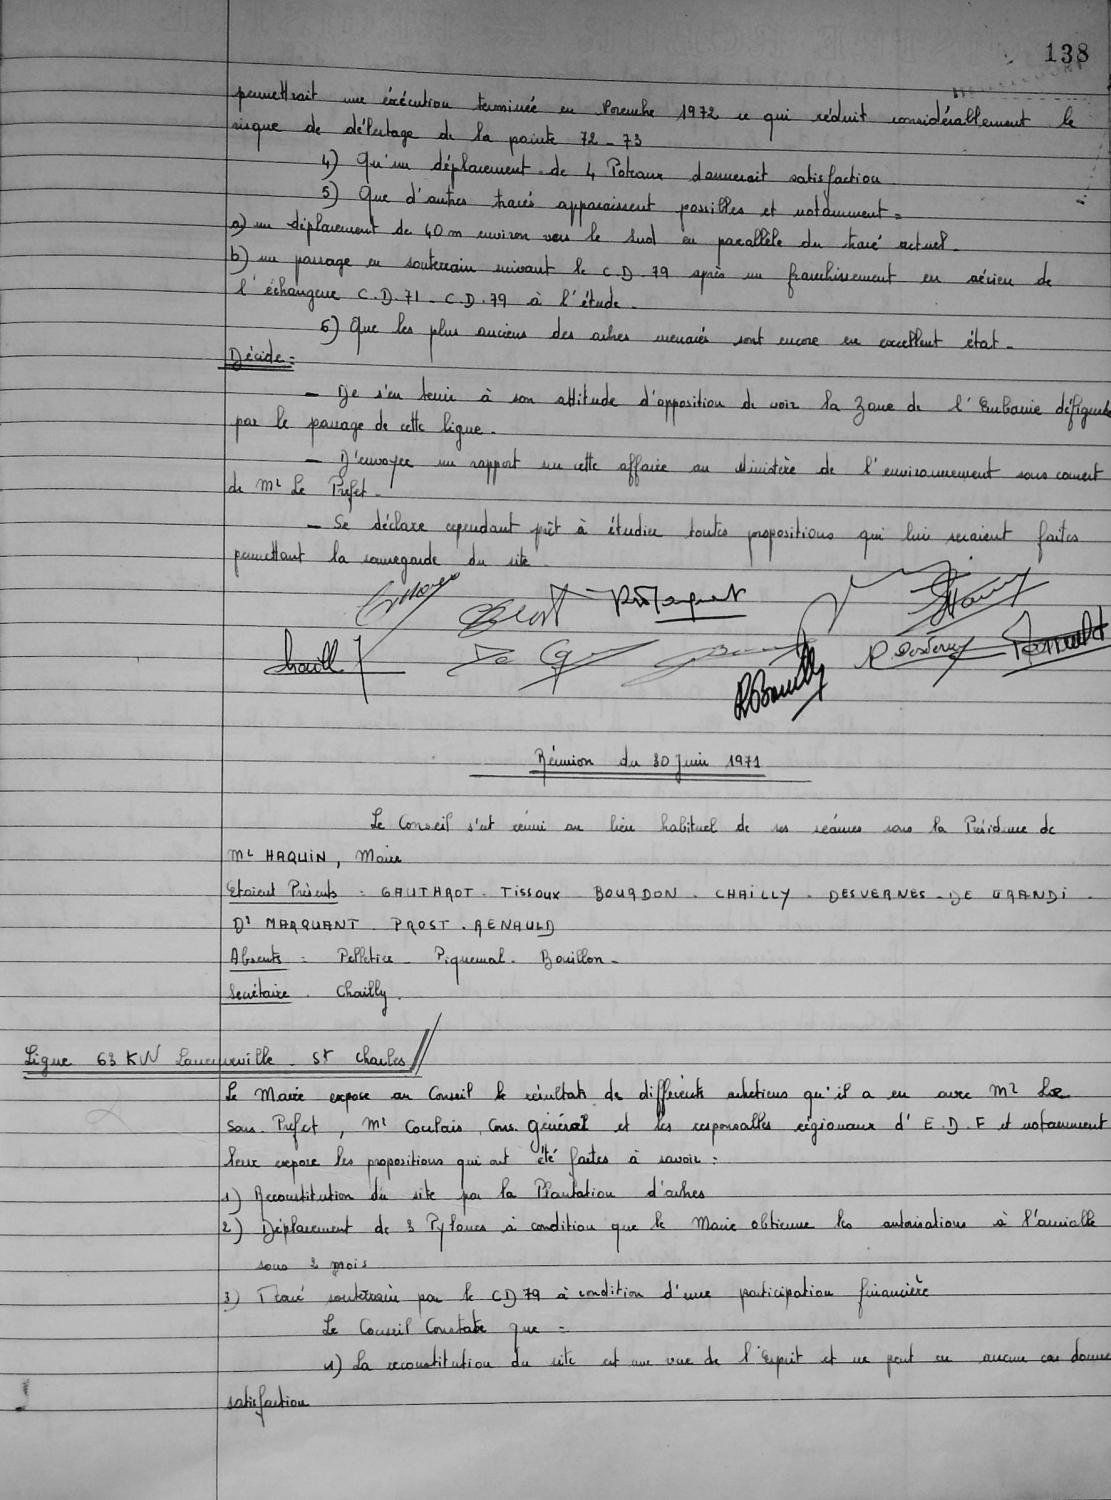 138
permettrait une éxécution terminée en Novembre 1972 ce qui réduit considérablement le
risque de délestage de la pointe 72-73
4) Qu'un déplacement de 4 Poteaux donnerait satisfaction
5) Que d'autres tracés apparaissent possibles et notamment =
a) un déplacement de 40 m environ vers le Sud en parallèle du tracé actuel.
b) un passage en souterrain suivant le C.D.79 après un franchissement en aérien de
l'échangeur C.D.71 - C.D.79 à l'étude.
6) Que les plus anciens des arbres menacés sont encore en excellent état.
Décide :
- De s'en tenir à son attitude d'opposition de voir la Zone de l'Embanie défigurée
par le passage de cette ligne.
- D'envoyer un rapport sur cette affaire au Ministère de l'environnement sous couvert
de Mr Le Préfet.
- Se déclare cependant prêt à étudier toutes propositions qui lui seraient faites
permettant la sauvegarde du site.
Chailly
Réunion du 30 Juin 1971
Le Conseil s'est réuni au lieu habituel de ses séances sous la Présidence de
Mr HAQUIN, Maire
Etaient Présents : GAUTHROT. TISSOUX BOURDON. CHAILLY. DESVERNES. DE GRANDI.
Dr MARQUANT. PROST. RENAULD
Absents : Pelletier - Piquemal - Bouillon -
Secrétaire. Chailly.
Ligne 63 KW Laneuveville - St Charles
Le Maire expose au Conseil le résultats de différents entretiens qu'il a eu avec Mr Le
Sous. Préfet, Mr Coulais, Cons. général et les responsables régionaux d'E.D.F et notamment
leur expose les propositions qui ont été faites à savoir :
1) Reconstitution du site par la Plantation d'arbres
2) Déplacement de 3 Pylones à condition que le Maire obtienne les autorisations à l'amiable
sous 2 mois
3) Tracé souterrain par le CD79 à condition d'une participation financière
Le Conseil Constate que =
1) La reconstitution du site est une vue de l'Esprit et ne peut en aucun cas donner
satisfaction